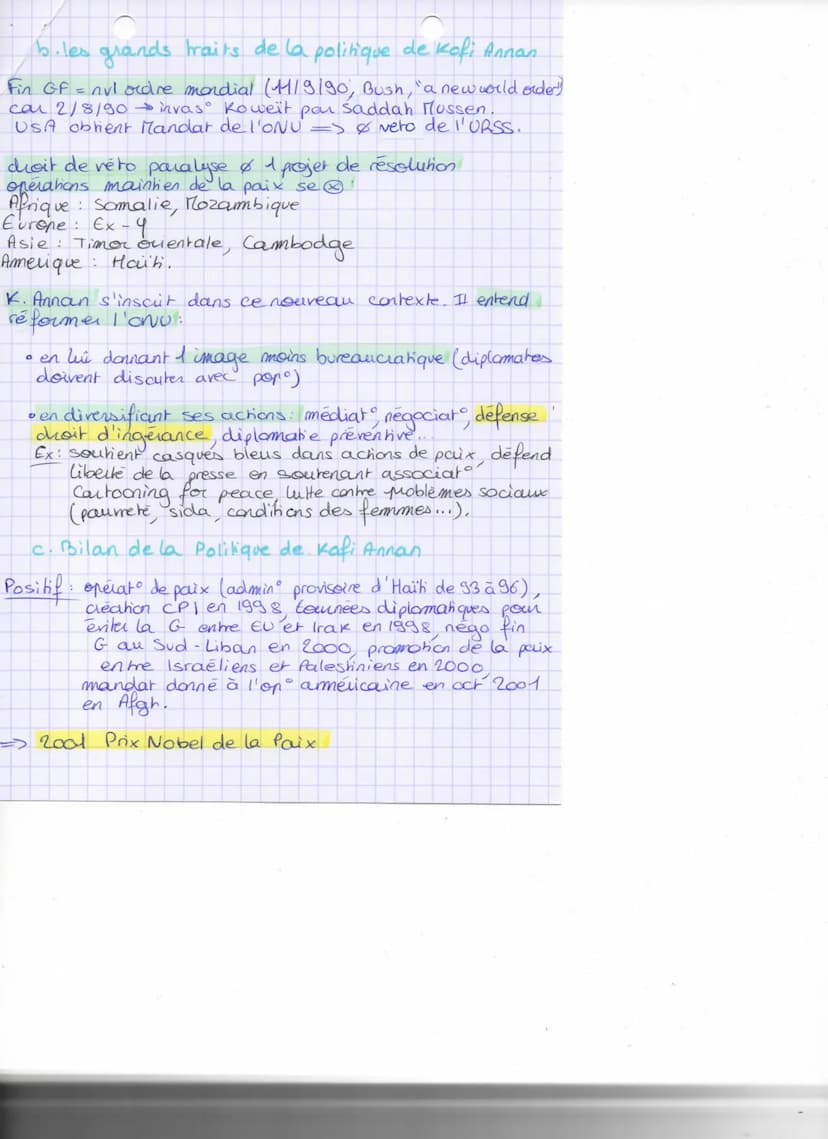 b. les grands traits de la politique de Kofi Annan
Fin GF = nvl ordre mondial (11/9/90, Bush, "a new world order")
car 2/8/90 → invas° Koweït par Saddah Hussen.
USA obtient Mandat de l'ONU => ∅ veto de l'URSS.
droit de véto paralyse ∅ 1 projet de résolution
opérations maintien de la paix se ⊗ :
Afrique : Somalie, Mozambique
Europe : Ex - Y
Asie : Timor orientale, Cambodge
Amérique : Haïti.
K. Annan s'inscrit dans ce nouveau contexte. Il entend
réformer l'ONU :
• en lui donnant 1 image moins bureaucratique (diplomates
doivent discuter avec pop°)
• en diversifiant ses actions : médiat°, négociat°, défense
droit d'ingérance, diplomatie préventive...
Ex : soutient casques bleus dans actions de paix, défend
liberté de la presse en soutenant associat°
Cartooning for peace, lutte contre problèmes sociaux
(pauvreté, sida, conditions des femmes...).
c. Bilan de la Politique de Kafi Annan
Positif : opérat° de paix (admin° provisoire d'Haïti de 93 à 96),
création CPI en 1998, tournées diplomatiques pour
éviter la G entre EU et Irak en 1998, négo fin
G au Sud - Liban en 2000, promotion de la paix
entre Israéliens et Palestiniens en 2000,
mandat donné à l'op° américaine en oct 2001
en Afgh.
=> 2001 Prix Nobel de la Paix